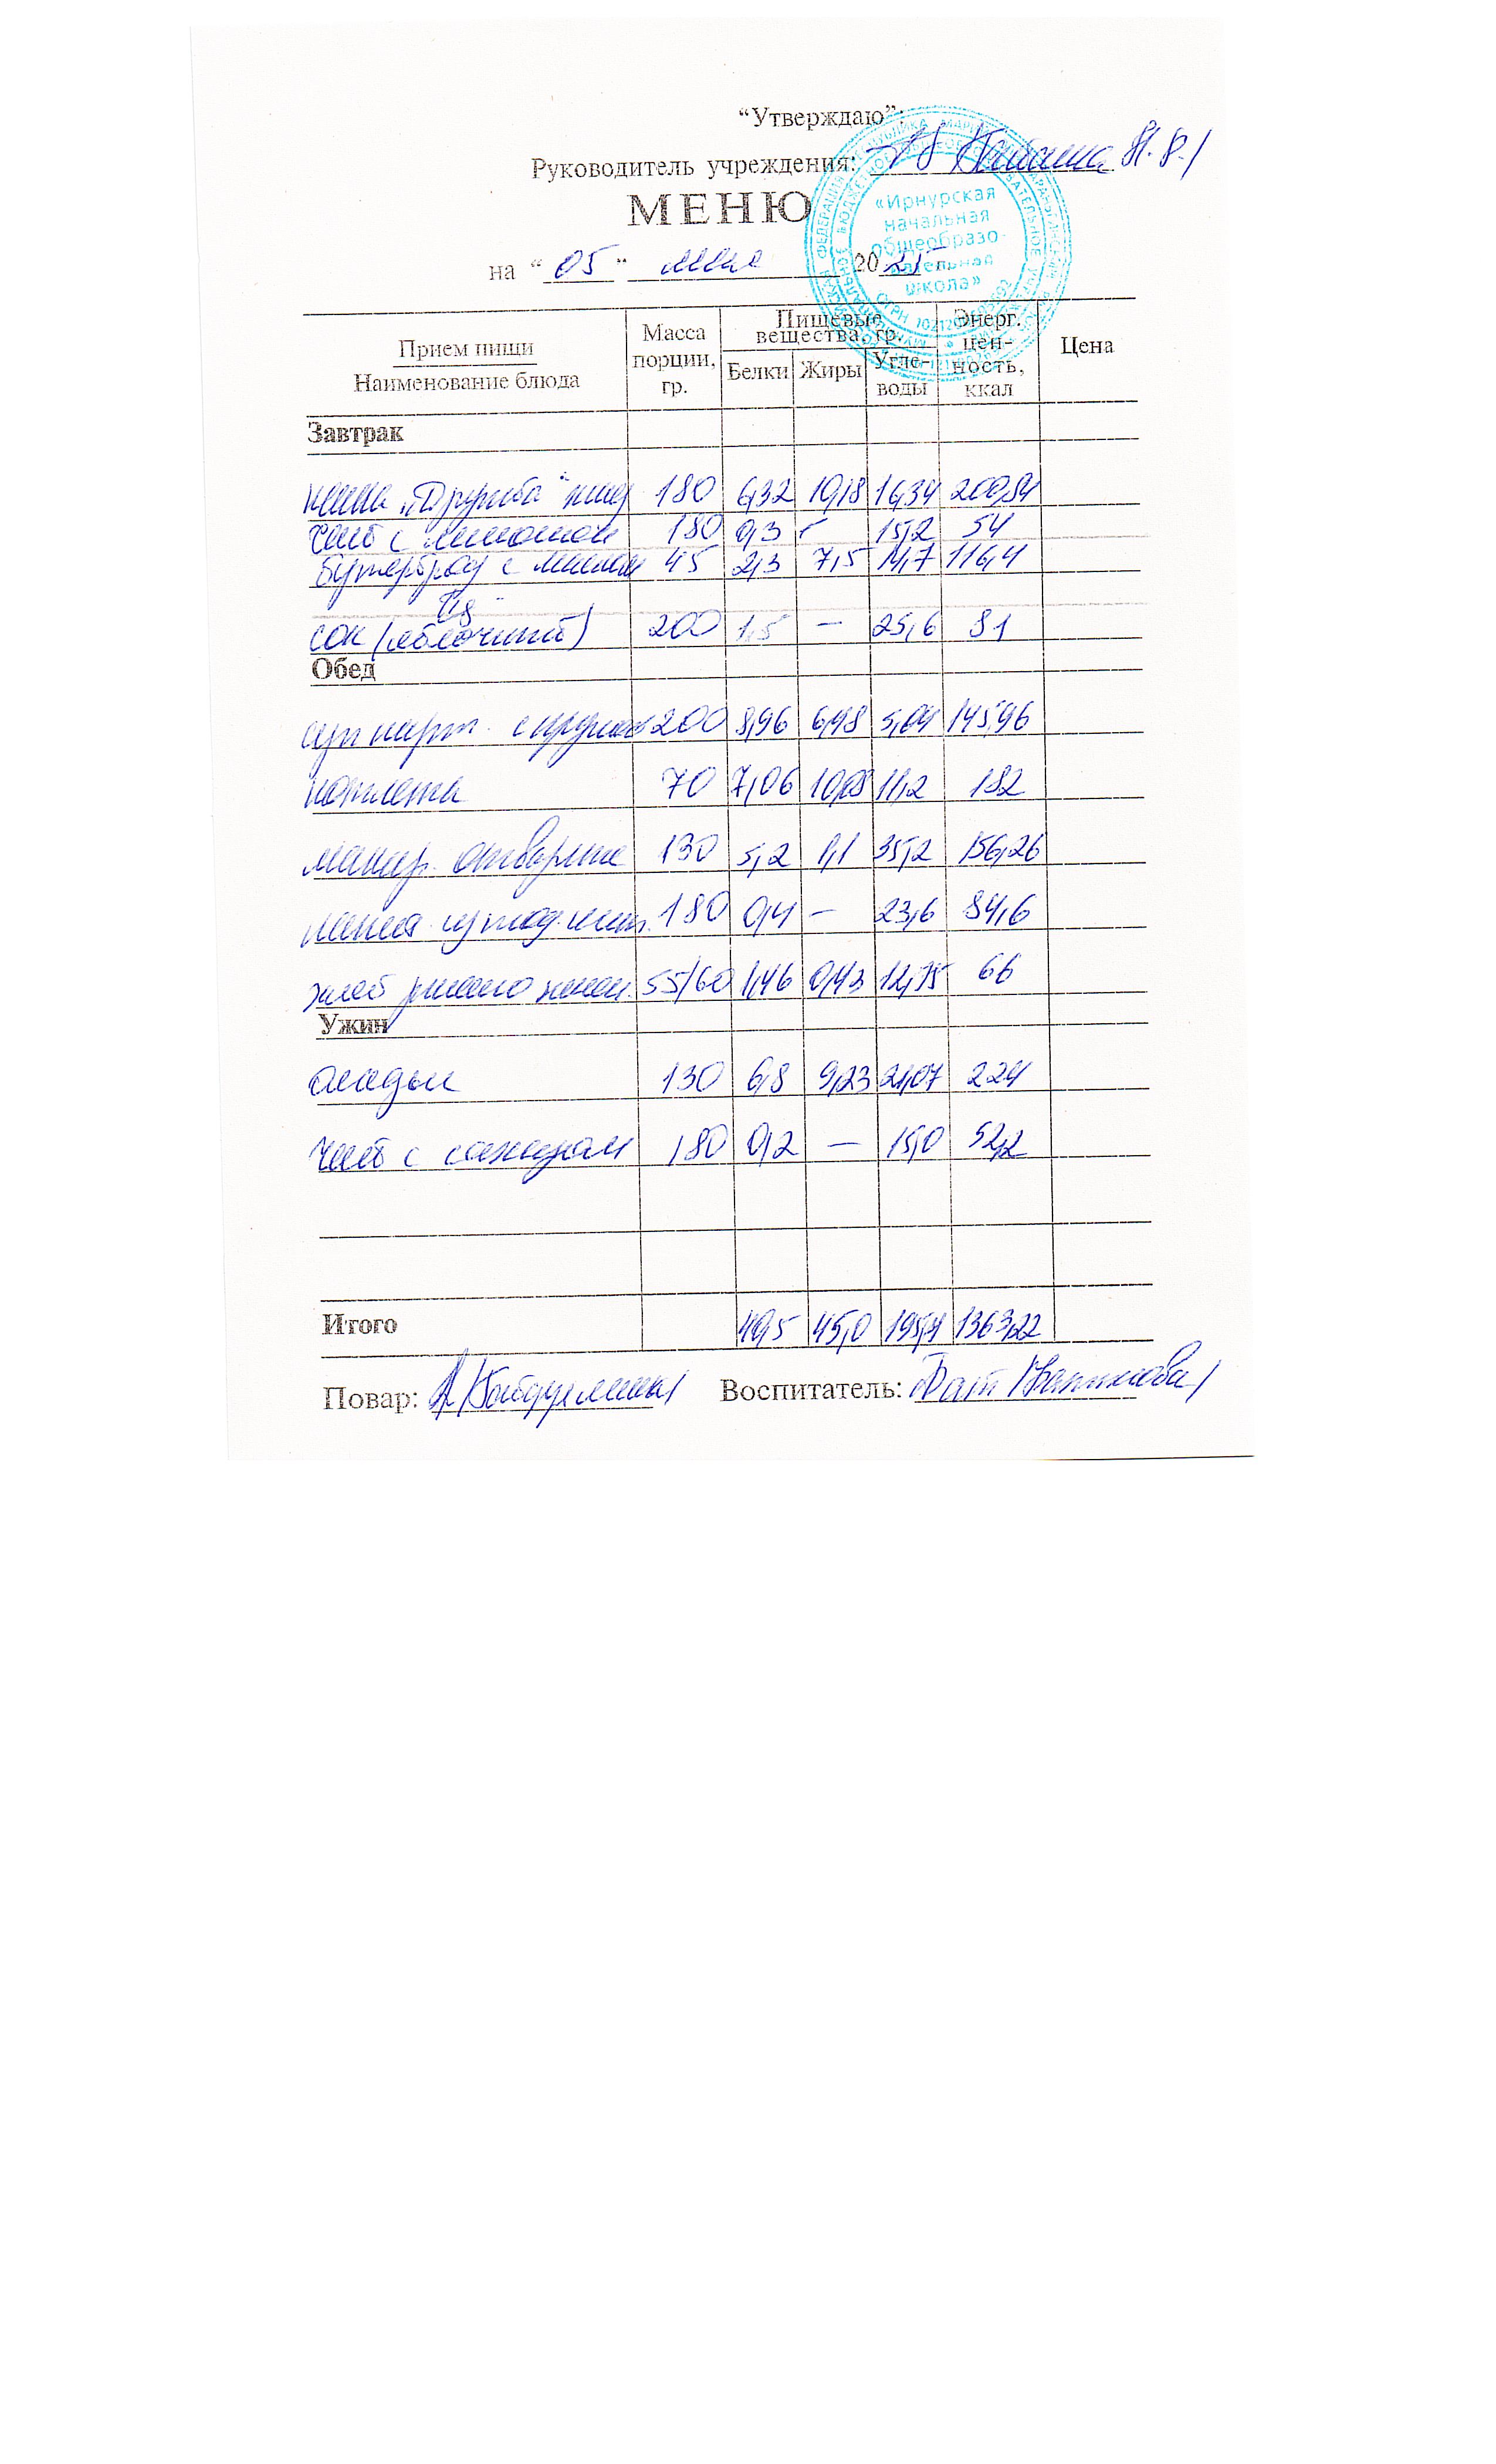 “Утверждаю”:
Руководитель учреждения:
МЕНЮ
«Ирнурская
начальная
общеобразо-
вательная
школа»
на “05“ мая 20
Прием пищи
Наименование блюда
Масса порции, гр.
Пищевые вещества, гр.
Белки Жиры Угле-воды
Энерг. цен-ность, ккал
Цена
Завтрак
каша „Дружба“ 180 6,32 10,18 16,34 200,84
чай с лимоном 180 0,3 - 15,2 54
бутерброд с маслом 45 2,3 7,5 14,7 116,4
сок (яблочный) 200 1,5 — 25,6 81
Обед
суп карт. с 200 8,96 6,48 5,04 145,96
котлета 70 7,06 10,08 11,2 182
макар. отварные 130 5,2 1,1 35,2 156,26
180 0,4 — 23,6 84,6
хлеб ржано 55/60 1,46 0,43 12,75 66
Ужин
оладьи 130 6,8 9,23 21,07 224
чай с сахаром 180 0,2 — 15,0 52,2
Итого 40,5 45,0 195,4 1363,22
Повар: Воспитатель: